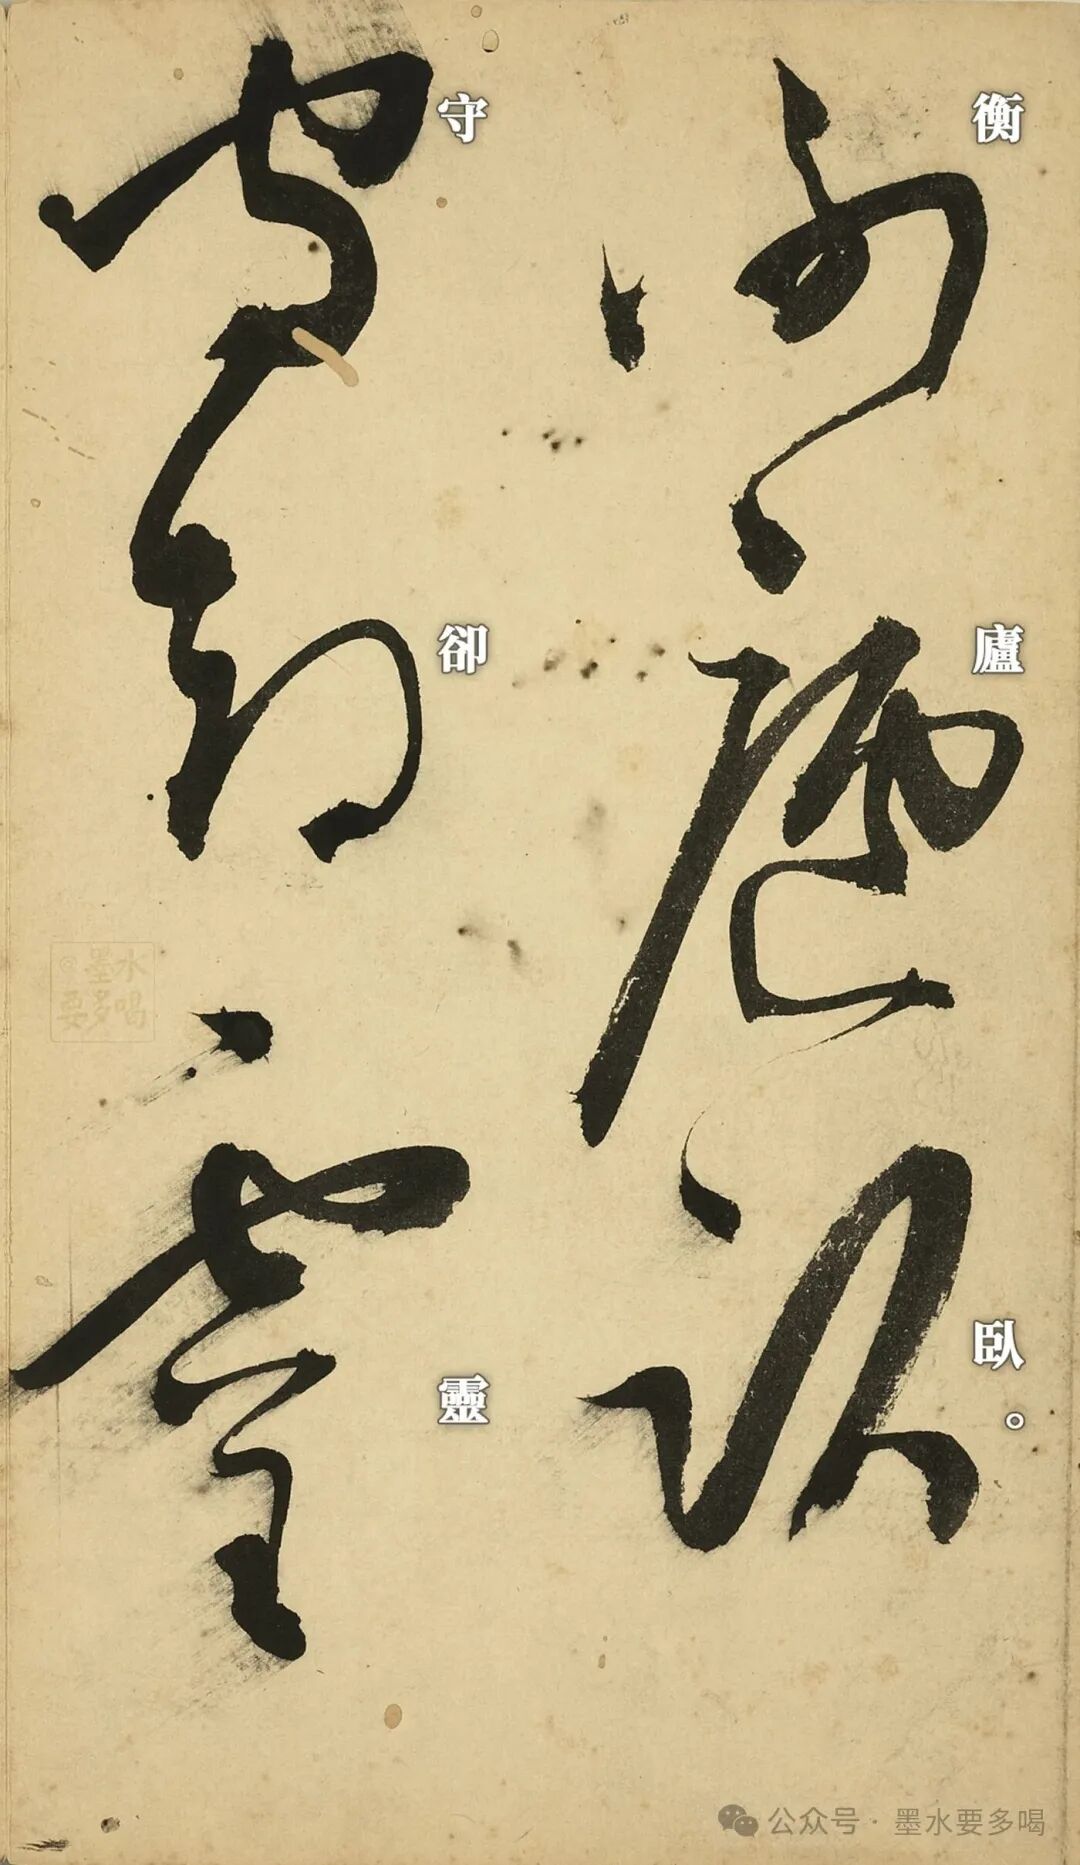 衡廬臥。
守卻靈
@墨水
要多喝
公众号·墨水要多喝